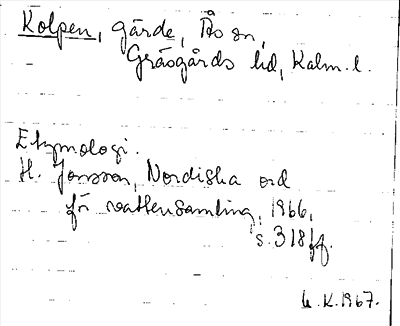 Kolpen, gärde, Ås sn,
Gräsgårds hd, Kalm. l.
Etymologi.
H. Jonsson, Nordiska ord
för vattensamling, 1966,
s. 318 ff.
U.K. 1967.